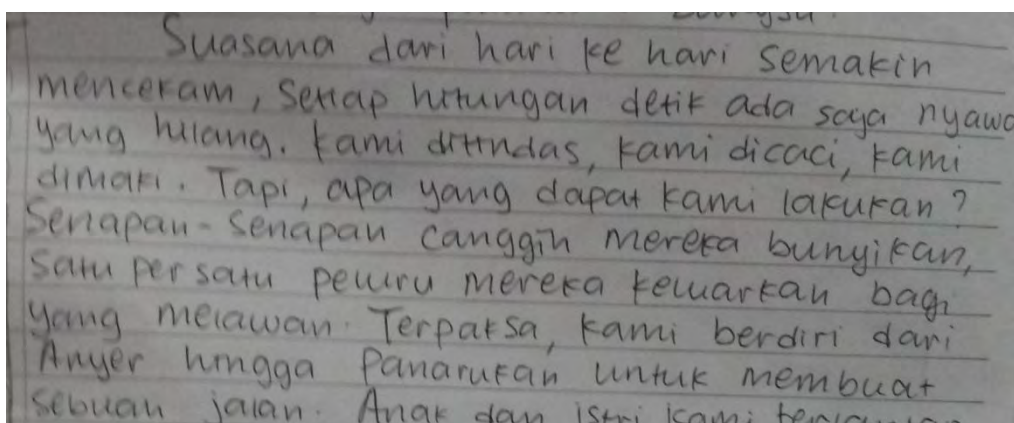 Suasana dari hari ke hari semakin
menceram, setiap hitungan detik ada saja nyawa
yang hilang. Kami ditindas, kami dicaci, kami
dimaki. Tapi, apa yang dapat kami lakukan?
Senapan-senapan canggih mereka bunyikan,
satu per satu peluru mereka keluarkan bagi
yang melawan. Terpaksa, kami berdiri dari
Anyer hingga Panarukan untuk membuat
sebuah jalan. Anak dan istri kami